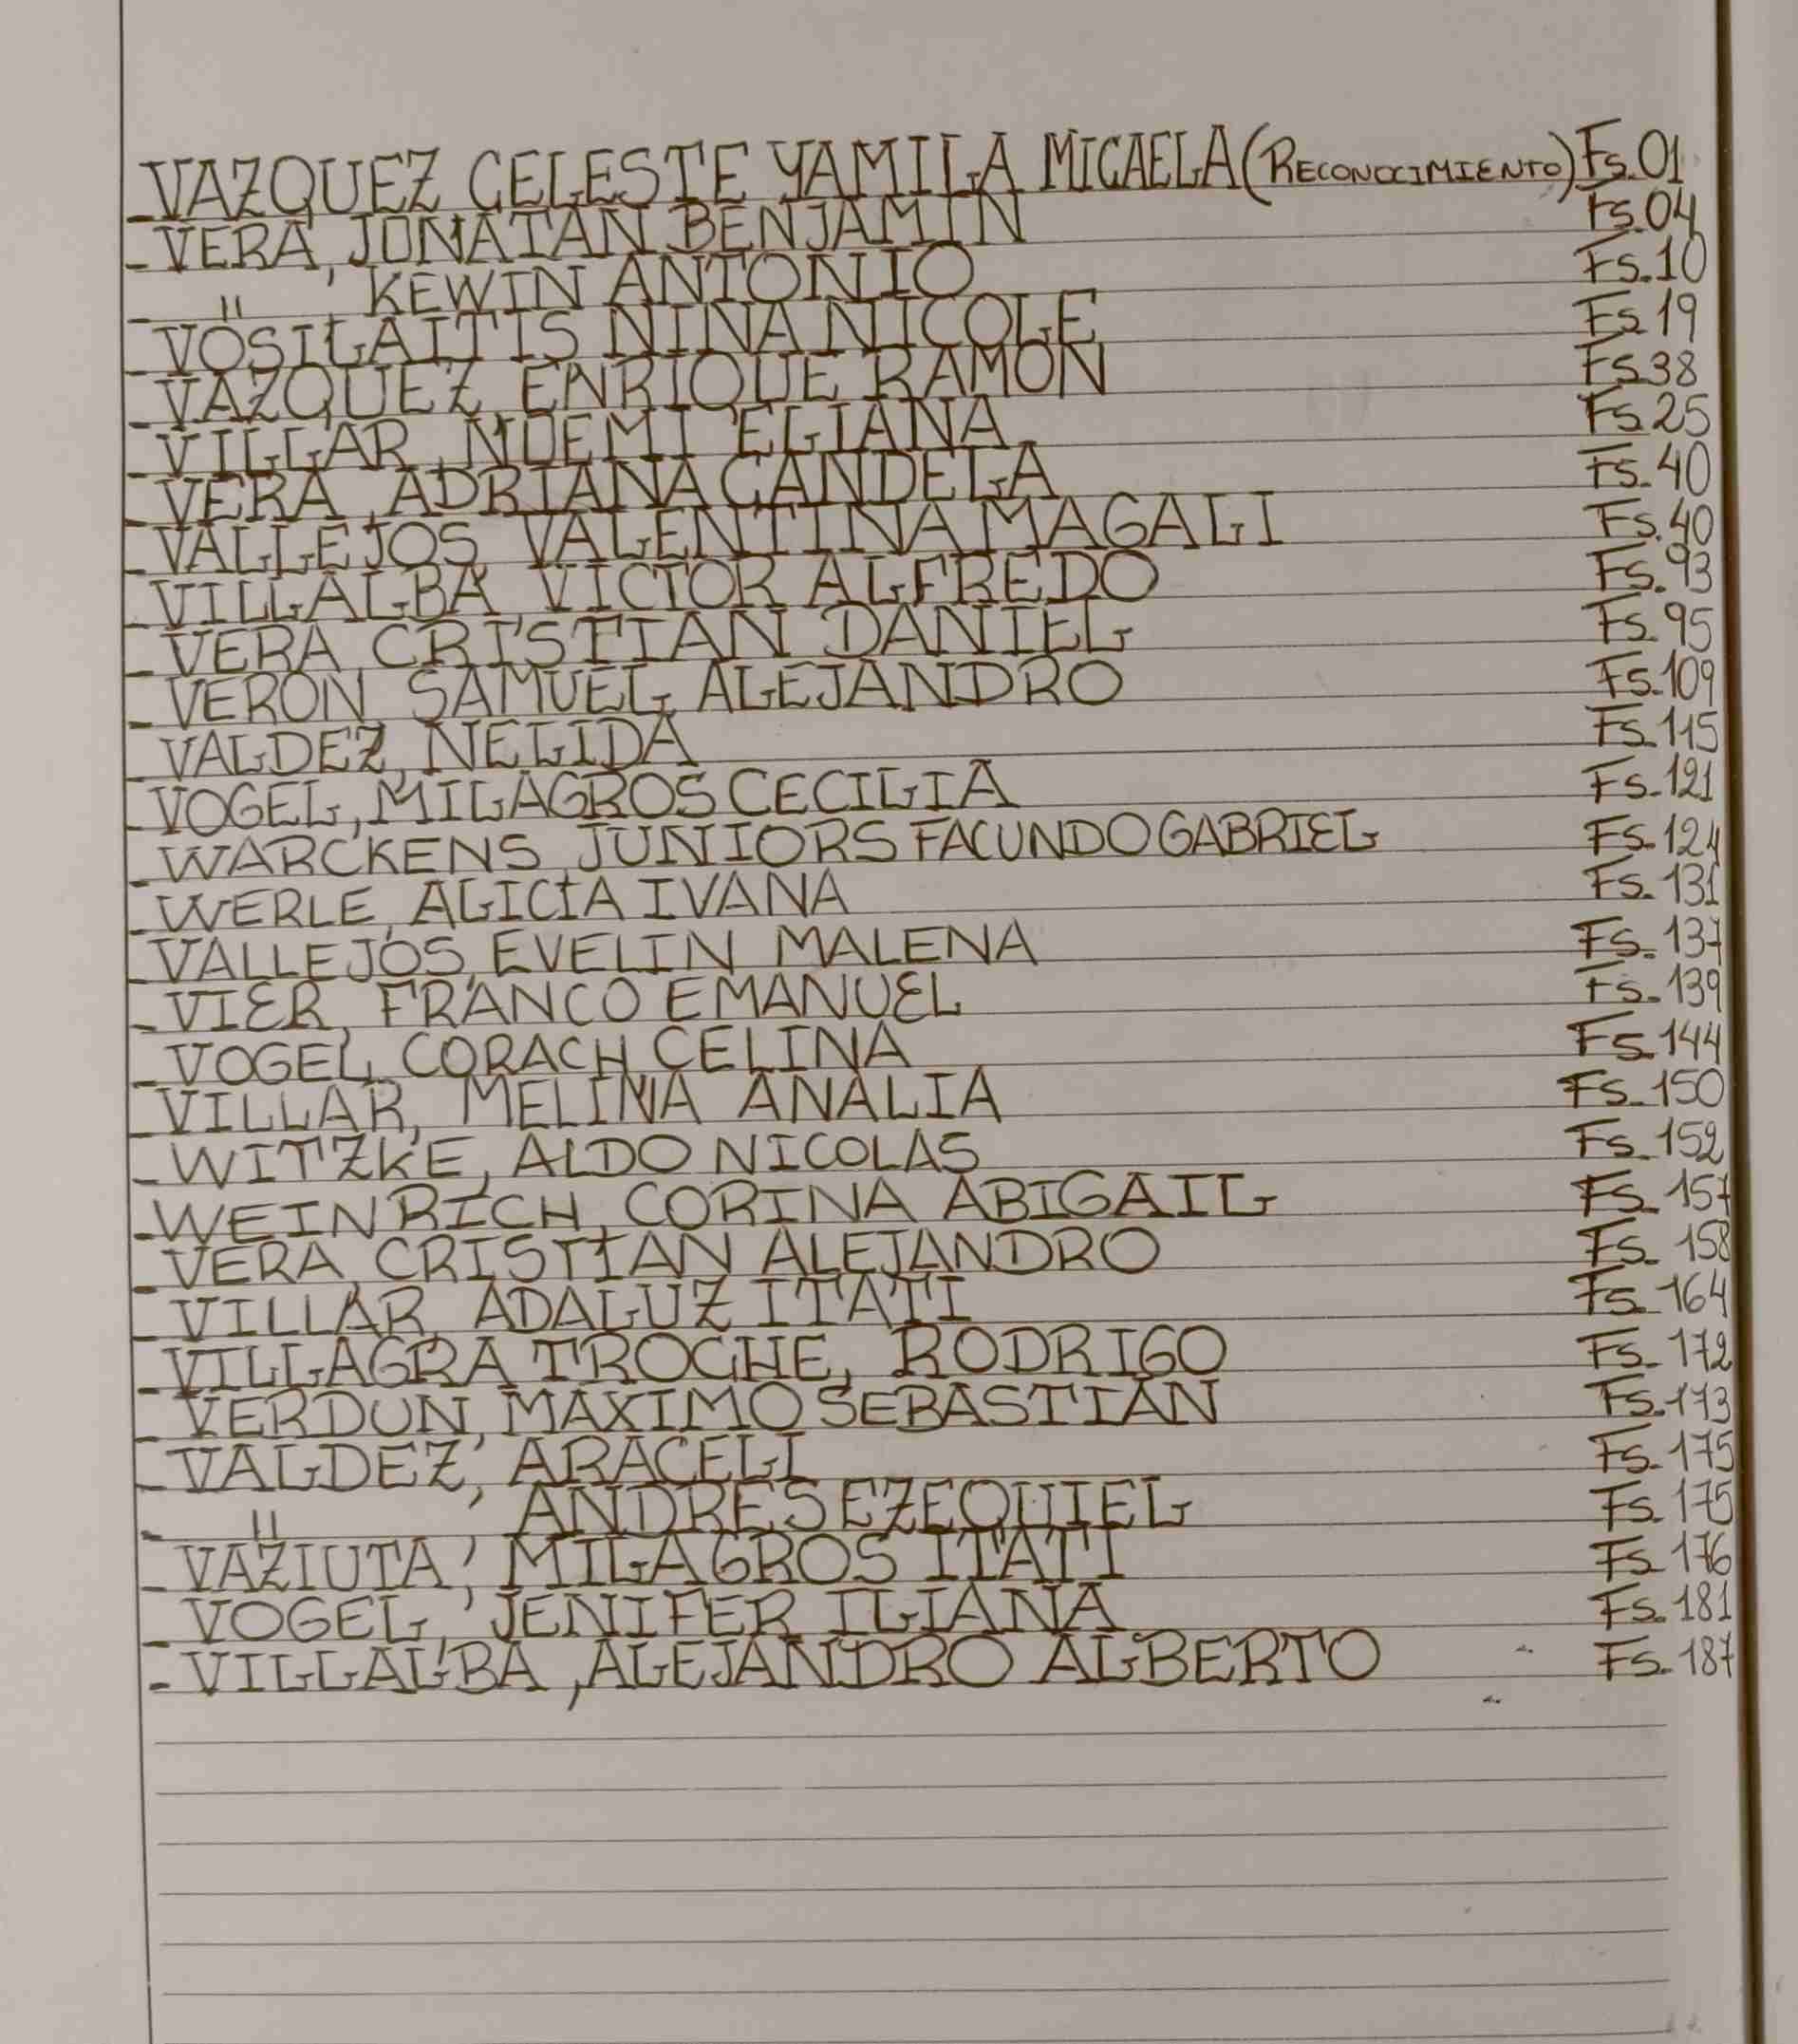 - VAZQUEZ CELESTE YAMILA MICAELA (RECONOCIMIENTO) Fs. 01
- VERA, JONATAN BENJAMIN Fs. 04
- " , KEWIN ANTONIO Fs. 10
- VOSILAITIS NINA NICOLE Fs 19
- VAZQUEZ, ENRIQUE RAMON Fs 38
- VILLAR, NOEMI ELIANA Fs 25
- VERA, ADRIANA CANDELA Fs. 40
- VALLEJOS, VALENTINA MAGALI Fs. 40
- VILLALBA, VICTOR ALFREDO Fs. 93
- VERA, CRISTIAN DANIEL Fs. 95
- VERON, SAMUEL ALEJANDRO Fs. 109
- VALDEZ, NELIDA Fs. 115
- VOGEL, MILAGROS CECILIA Fs. 121
- WARCKENS, JUNIORS FACUNDO GABRIEL Fs. 124
- WERLE, ALICIA IVANA Fs. 131
- VALLEJOS, EVELIN MALENA Fs. 137
- VIER, FRANCO EMANUEL Fs. 139
- VOGEL, CORACH CELINA Fs. 144
- VILLAR, MELINA ANALIA Fs. 150
- WITZKE, ALDO NICOLAS Fs. 152
- WEINRICH, CORINA ABIGAIL Fs. 157
- VERA, CRISTIAN ALEJANDRO Fs. 158
- VILLAR, ADALUZ ITATI Fs. 164
- VILLAGRA TROCHE, RODRIGO Fs. 172
- VERDUN, MAXIMO SEBASTIAN Fs. 173
- VALDEZ, ARACELI Fs. 175
- " , ANDRES EZEQUIEL Fs. 175
- VAZIUTA, MILAGROS ITATI Fs. 176
- VOGEL, JENIFER ILIANA Fs. 181
- VILLALBA, ALEJANDRO ALBERTO Fs. 187